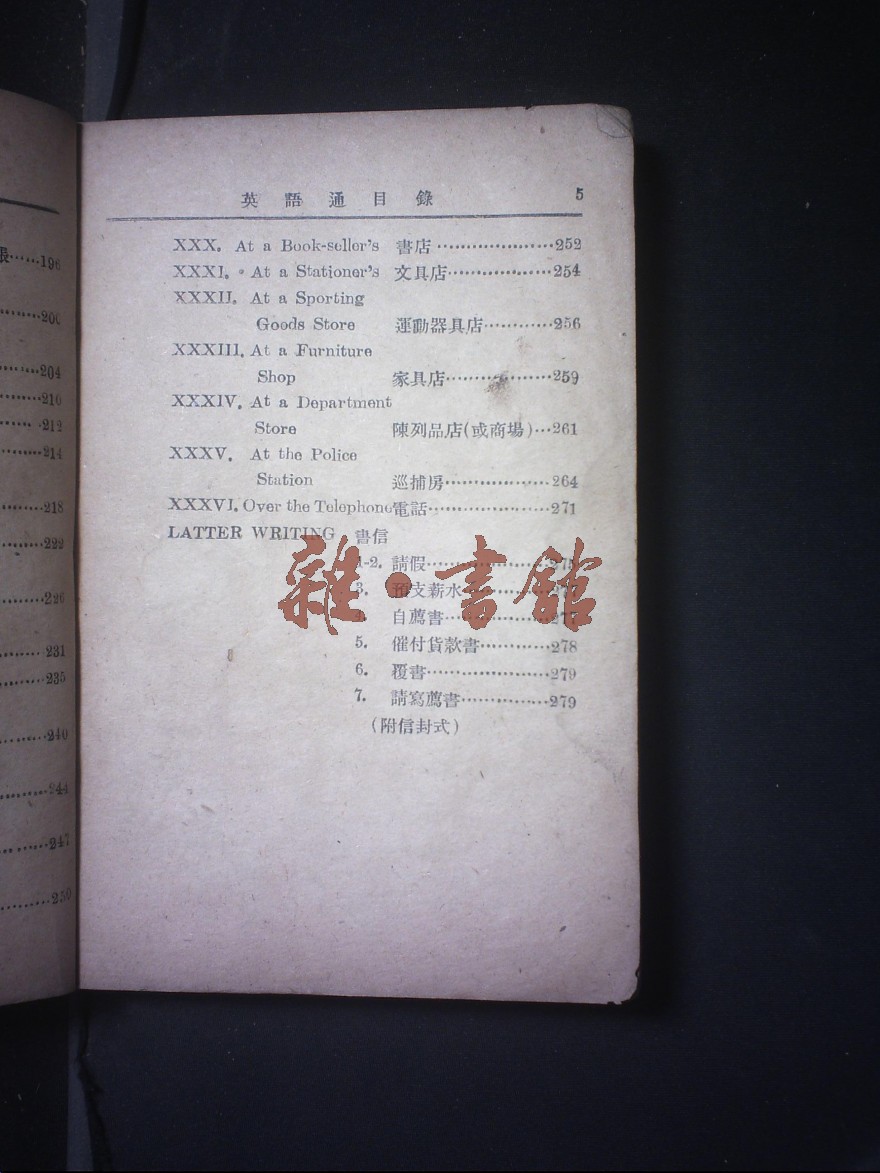 英語通目錄 5
XXX. At a Book-seller's 書店 252
XXXI. At a Stationer's 文具店 254
XXXII. At a Sporting
Goods Store 運動器具店 256
XXXIII. At a Furniture
Shop 家具店 259
XXXIV. At a Department
Store 陳列品店(或商場) 261
XXXV. At the Police
Station 巡捕房 264
XXXVI. Over the Telephone 電話 271
LATTER WRITING 書信
1-2. 請假
3. 預支薪水
4. 自薦書 277
5. 催付貨款書 278
6. 覆書 279
7. 請寫薦書 279
(附信封式)
雜·書館
196
200
204
210
212
214
218
222
226
231
235
240
244
247
250